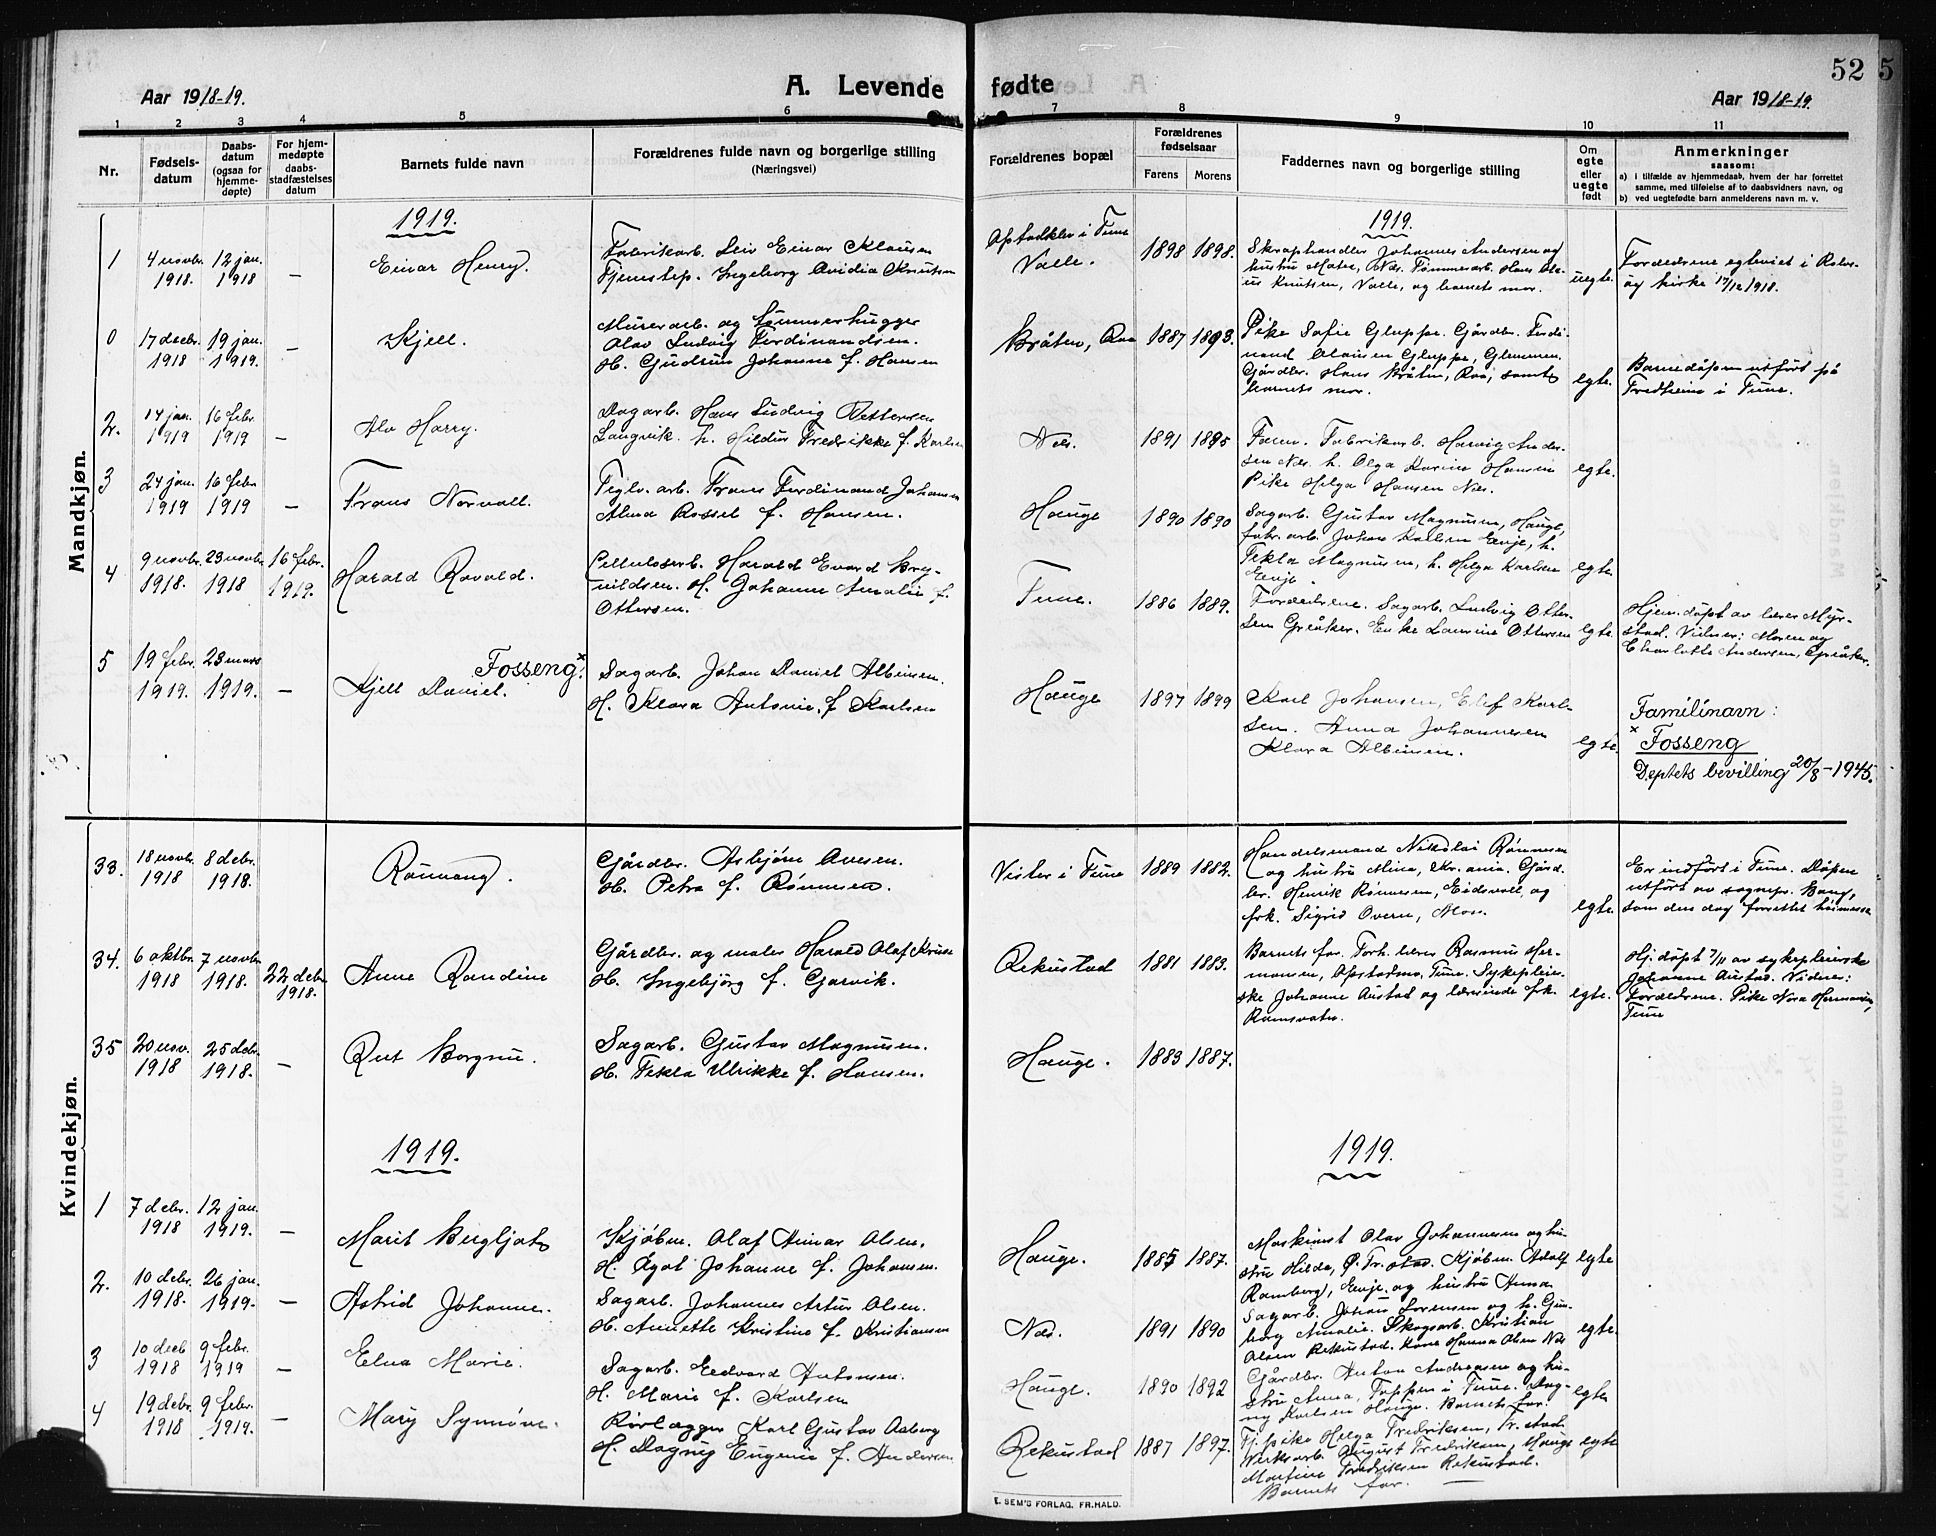 52 5
A. Levende fødte
Aar 1918-19.
Aar 1918-19.
1 2 3 4 5 6 7 8 9 10 11
Nr.
Fødsels-
datum
Daabs-
datum
(ogsaa for
hjemme-
døpte)
For hjem-
medøpte
daabs-
stadfæstelses
datum
Barnets fulde navn
Forældrenes fulde navn og borgerlige stilling
(Næringsvei)
Forældrenes bopæl
Forældrenes
fødselsaar
Farens Morens
Faddernes navn og borgerlige stilling
Om
egte
eller
uegte
født
Anmerkninger
saasom:
a) i tilfælde av hjemmedaab, hvem der har forrettet
samme, med tilføielse av to daabsvidners navn, og
b) ved uegtefødte barn anmelderens navn m. v.
Mandkjøn.
1919.
1919.
1 4 novbr. 1918. 12 jan. 1918 —
Einar Henry.
Fabrikarb. Leiv Einar Klausen
Tjenestep. Ingeborg Ovidia Knutsen
Opstadklev i Tune
Valle.
1898 1898.
Skraphandler Johannes Andersen og
hustru Mater, Næs. Tømmerarb. Hans Ole-
us Knutsen, Valle, og barnets mor.
uegte.
Forældrene egteviet i Rolvs-
øy kirke 17/12 1918.
0 17 decbr. 1918 19 jan. 1919. —
Kjell.
Murerarb. og tømmerhugger
Olav Ludvig Ferdinandsen.
H. Gudrun Johanne f. Hansen
Bråten, Råa
1887 1893.
Pike Sofie Gluppe. Gårdbr. Ferdi-
nand Olausen Gluppe, Glemmen.
Gårdbr. Hans Bråten, Råa, samt
barnets mor.
egte.
Barnedåpen utført på
Fredheim i Tune.
2. 14 jan. 1919 16 febr. 1919 —
Alv Harry.
Dagarb. Hans Ludvig Pettersen
Langvik. h. Hildur Fredrikke f. Karlsen
Næs.
1891 1895
Faren. Fabrikarb. Harvig Ander-
sen Næs. h. Olga Karine Hansen
Pike Helga Hansen Næs.
egte.
3 24 jan. 1919 16 febr. 1919 —
Frans Norvall.
Teglv. arb. Frans Ferdinand Johansen
Alma Rossel f. Hansen.
Hauge
1890 1890
Sagarb. Gustav Magnusen, Hauge,
fabr. arb. Johan Karlsen Evje, h.
Tekla Magnusen, h. Helga Karlsen
Evje.
egte.
4 9 novbr. 1918. 23 novbr. 1918 16 febr. 1919.
Harald Ravald.
Cellulosearb. Harald Evard Bry-
nildsen. H. Johanne Amalie f.
Ottersen.
Tune.
1886 1889.
Forældrene. Sagarb. Ludvig Otter-
sen Greåker. Enke Laurine Ottersen
egte.
Hjem. døpt av lærer Myr-
stad. Vidner: Moren og
Charlotte Andersen, Greåker.
5 19 febr. 1919. 23 mars 1919. —
Fosseng ×
Kjell Daniel.
Sagarb. Johan Daniel Albinsen.
H. Klara Antonie, f. Karlsen
Hauge
1897 1899
Karl Johansen, Elef Karl-
sen. Anna Johannesen
Klara Albinsen.
egte.
Familinavn:
× Fosseng
Deptets bevilling 20/8-1945.
Kvindekjøn.
33. 18 novbr. 1918 8 debr. 1918.
Rønnaug.
Gårdbr. Asbjørn Avesen.
H. Petra f. Rønnesen.
Vister i Tune
1889 1882.
Handelsmand Nikolai Rønnesen
og hustru Mina, Kr.ania. Gård-
br. Henrik Rønnesen, Eidsvoll, og
frk. Sigrid Overn, Moss.
egte.
Er indført i Tune. Dåpen
utført av sognepr. Bang,
som den dag forrettet høimesse
34. 6 oktbr. 1918 7 novbr. 1918. 22 debr. 1918.
Anne Randine
Gårdbr. og maler Harald Olaf Kruse
H. Ingebjørg f. Garvik.
Rekustad
1881 1883.
Barnets far. Forh. lærer Rasmus Her-
mansen, Opstadmo, Tune. Sykepleier-
ske Johanne Austad og lærerinde frk.
Ramsvatn.
egte.
Hj. døpt 7/11 av sykepleierske
Johanne Austad. Vidner:
Forældrene. Pike Nora Hermansen,
Tune
35 20 nov. 1918 25 debr. 1918. —
Rut Borgny.
Sagarb. Gustav Magnusen.
H. Tekla Ulrikke f. Hansen.
Hauge.
1883 1887.
1919.
1919.
1 7 debr. 1918 12 jan. 1919. —
Marit Bergljot
Kjøbm. Olaf Hemar Olsen.
H. Agot Johanne f. Johansen.
Hauge.
1885 1887.
Maskinist Olav Johannesen og hu-
stru Hilda, Fr.stad. Kjøbm. Adolf
Ramberg, Evje, og hustru Anna
egte
2. 10 debr. 1918. 26 jan. 1919. —
Astrid Johanne.
Sagarb. Johannes Artur Olsen.
H. Annette Kristine f. Kristiansen
Næs.
1891 1890
Sagarb. Johan Sørensen og h. Gun-
borg Amalie. Skogsarb. Kristian
Olsen Rekustad. Kone Hanna Olsen Næs
egte.
3 10 decb 1918 9 febr. 1919 —
Elna Marie.
Sagarb. Eedvard Antonsen.
H. Marie f. Karlsen
Hauge.
1890 1892
Gårdbr. Anton Andreasen og hu-
stru Anna, Toppen i Tune. Dag-
ny Karlsen Hauge. Barnets far.
egte
4 19 debr. 1918 9 febr. 1919. —
Mary Synnøve.
Rørlægger Karl Gustav Aaberg
H. Dagny Eugenie f. Andersen
Rekustad
1887 1897.
Tj.pike Helga Fredriksen, Fr.stad
Verksarb. August Fredriksen, Hauge
Martine Fredriksen Rekustad.
Barnets far.
egte
E. SEM'S FORLAG, FR.HALD.